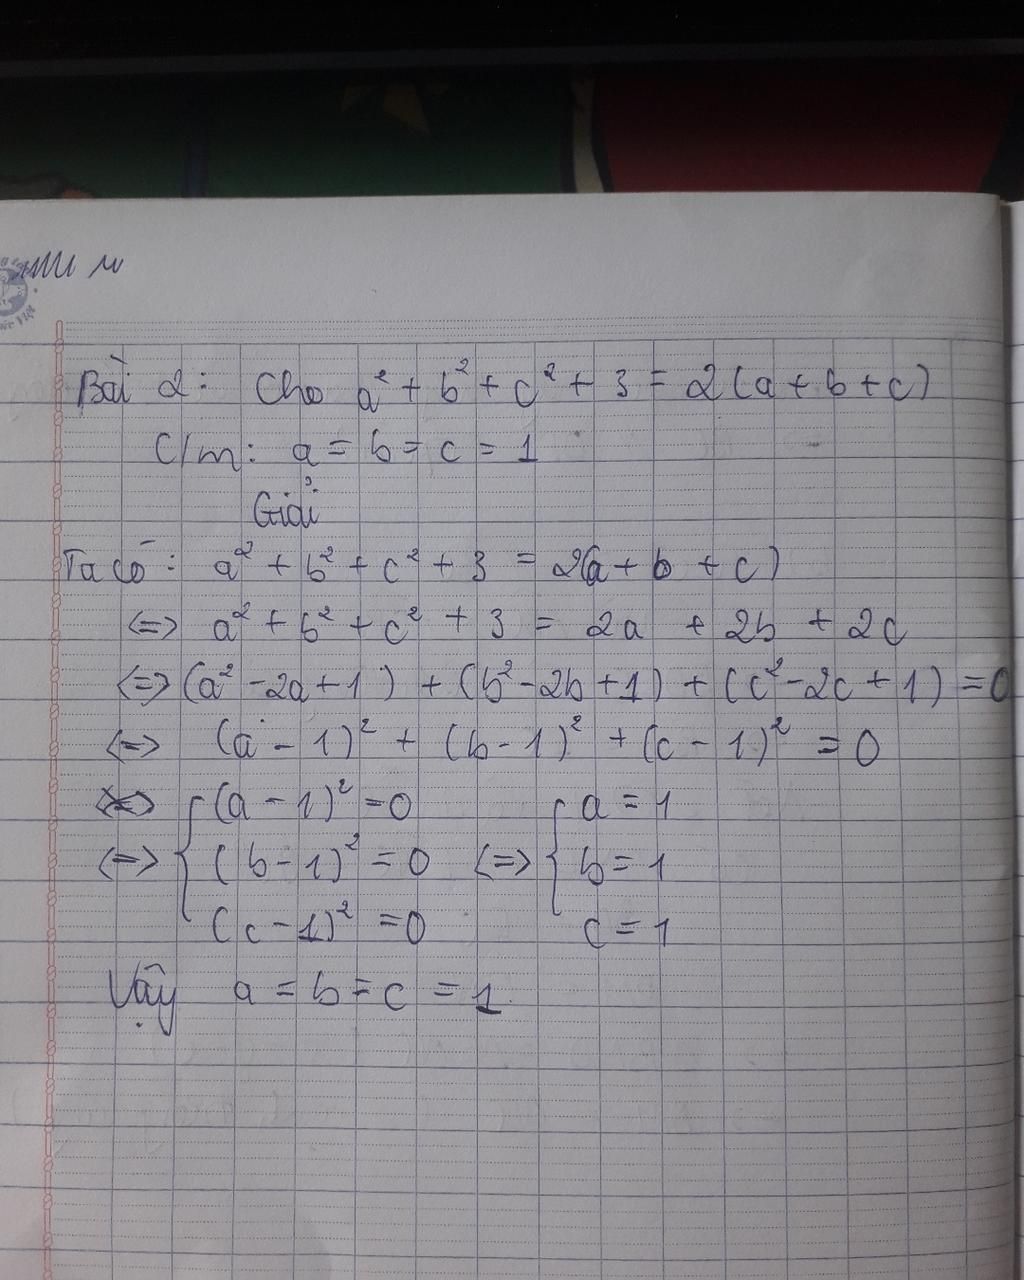 Bài 2: Cho a² + b² + c² + 3 = 2(a + b + c)
C/m: a = b = c = 1
Giải
Ta có: a² + b² + c² + 3 = 2(a + b + c)
<=> a² + b² + c² + 3 = 2a + 2b + 2c
<=> (a² - 2a + 1) + (b² - 2b + 1) + (c² - 2c + 1) = 0
<=> (a - 1)² + (b - 1)² + (c - 1)² = 0
(a - 1)² = 0 a = 1
<=> { (b - 1)² = 0 <=> { b = 1
(c - 1)² = 0 c = 1
Vậy a = b = c = 1.